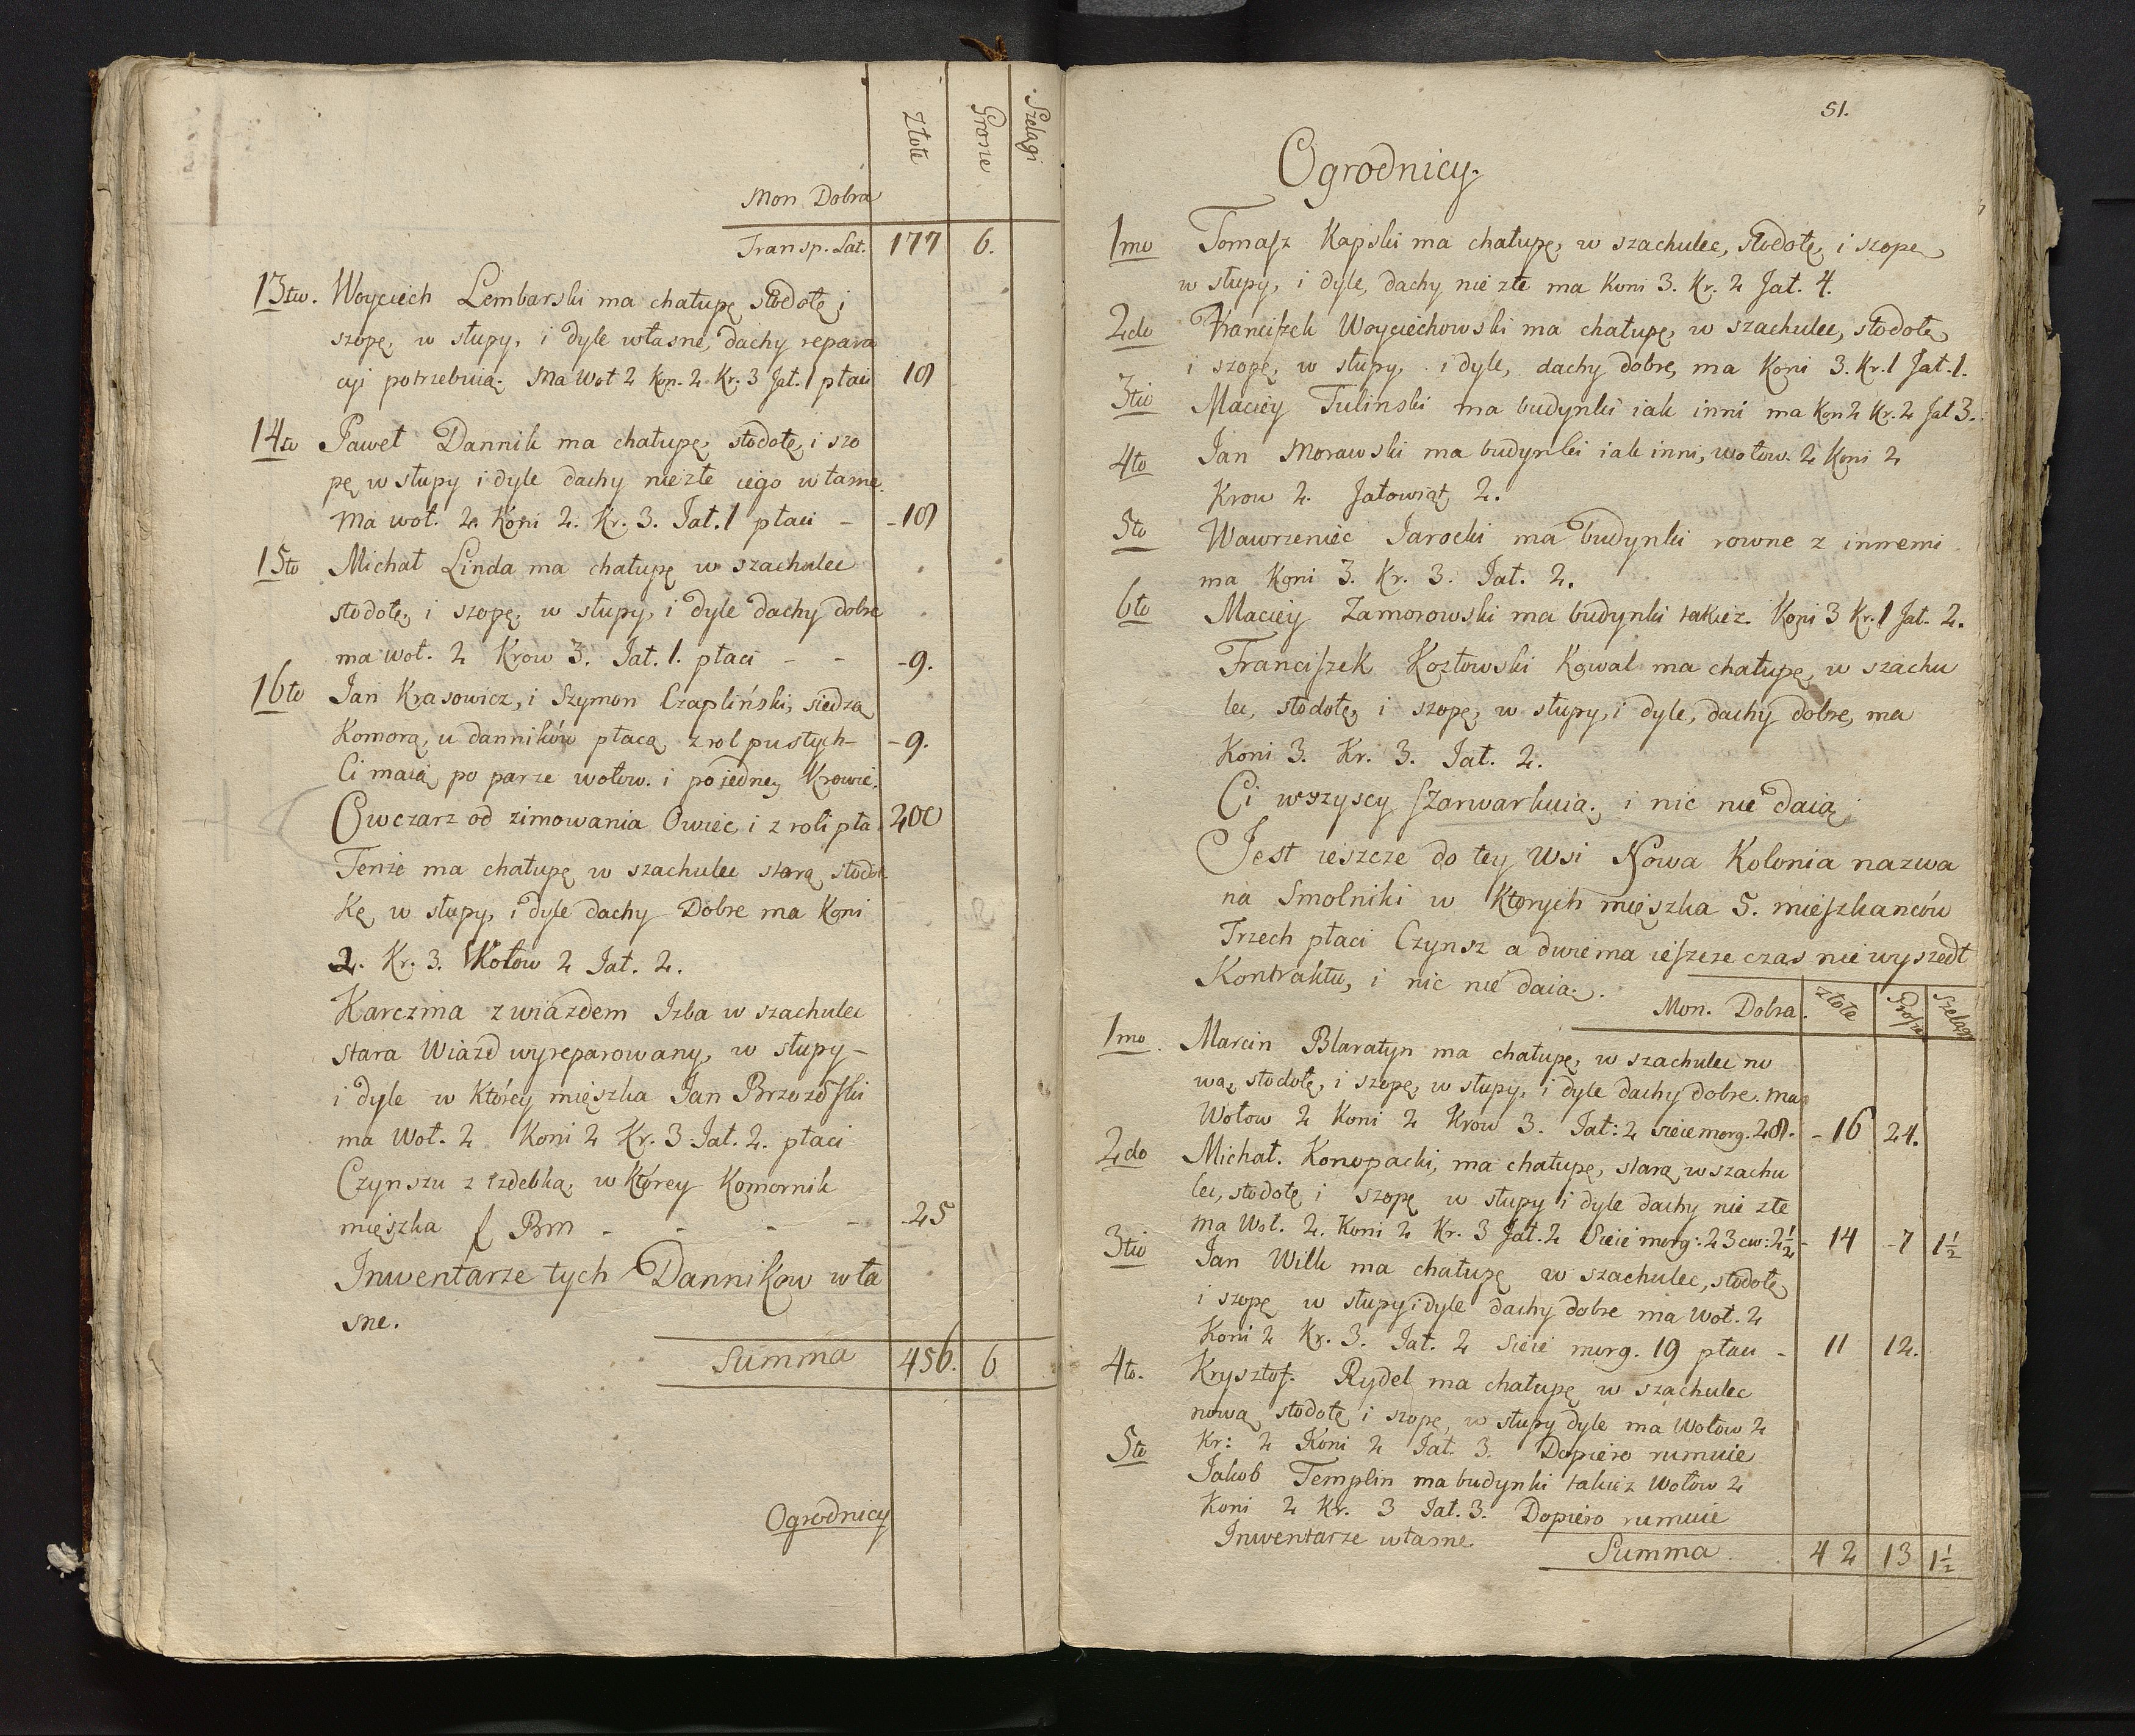 Złote Grosze Szelągi
Mon Dobra
Transp. Lat. 177 6.
13tio. Woyciech Lembarski ma chałupę stodołę i
szopę, w słupy, i dyle własne, dachy repara
cyi potrzebuią. Ma Woł 2 Kon. 2. Kr. 3 Jał. 1 płaci 18
14to Paweł Dannik ma chałupę, stodołę, i szo
pę w słupy i dyle dachy niezłe iego własne.
Ma woł. 2. Koni 2. Kr. 3. Jał. 1 płaci - -18
15to Michał Linda ma chałupę w szachulec
stodołę, i szopę, w słupy, i dyle dachy dobre
ma woł. 2 Krow 3. Jał. 1. płaci - - -9.
16to Jan Krasowicz, i Szymon Czapliński, siedzą
Komorą, u danników płacą, z rol pustych- -9.
Ci maią po parze wołow. i po iedney Krowie.
Owczarz od zimowania Owiec, i z roli pła 200
Tenże ma chałupę w szachulec starą stodoł
kę w słupy, i dyle dachy Dobre ma Koni
2. Kr. 3. Wołow 2 Jał. 2.
Karczma z wiazdem Izba w szachulec
stara Wiazd wyreparowany, w słupy-
i dyle w którey mięszka Jan Brzozoski
ma Woł. 2 Koni 2 Kr. 3 Jał. 2. płaci
Czynszu z izdebką, w którey Komornik
mięszka f Bm - - - - -25
Inwentarze tych Dannikow wła
sne.
Summa 456. 6
Ogrodnicy
51.
Ogrodnicy.
1mo Tomasz Kapski ma chałupę, w szachulec, stodołę, i szope
w słupy, i dyle, dachy nie złe ma Koni 3. Kr. 2 Jał. 4.
2do Franciszek Woyciechowski ma chałupę, w szachulec, stodołę
i szopę, w słupy, i dyle, dachy dobre, ma Koni 3. Kr. 1 Jał. 1.
3tio Maciey Tulinski ma budynki iak inni ma Kon 2 Kr. 2 Jał 3.
4to Jan Morawski ma budynki iak inni, wołow. 2 Koni 2
Krow 2. Jałowiąt 2.
5to Wawrzeniec Jarocki ma budynki rowne z innemi
ma Koni 3. Kr. 3. Jał. 2.
6to Maciey Zamorowski ma budynki takież. Koni 3 Kr. 1 Jał. 2.
Franciszek Kozłowski Kowal ma chałupę, w szachu
lec, stodołę, i szopę, w słupy, i dyle, dachy dobre, ma
Koni 3. Kr. 3. Jał. 2.
Ci wszyscy szarwarkuią, i nic nie daią,
Jest ieszcze do tey Wsi Nowa Kolonia nazwa
na Smolniki w Ktorych mięszka 5. mieszkanców
Trzech płaci Czynsz a dwiema ieszcze czas nie wyszedł
Kontraktu, i nic nie daią.
Mon. Dobra. złote Grosze Szelągi
1mo. Marcin Blaratyn ma chałupę, w szachulec no
wą, stodołę, i szopę, w słupy, i dyle dachy dobre. Ma
Wołow 2 Koni 2 Krow 3. Jał: 2 sieie morg. 28. - 16 24.
2do Michał. Konopacki, ma chałupę, starą, w szachu
lec, stodołę i szopę w słupy i dyle dachy nie złe
ma Woł. 2. Koni 2 Kr. 3 Jał. 2 Sieie morg: 23 cw: 2½ - 14 -7 1½
3tio Jan Wilk ma chałupę w szachulec, stodołę
i szopę w słupy i dyle dachy dobre ma Woł. 2
Koni 2 Kr. 3. Jał. 2 Sieie morg. 19 płaci - 11 12.
4to. Krysztof. Rydel ma chałupę w szachulec
nową stodołę i szopę, w słupy dyle ma Wołow 2
Kr: 2 Koni 2 Jał. 3. Dopiero rumuie
5to Jakob Templin ma budynki takież Wołow 2
Koni 2 Kr. 3 Jał. 3. Dopiero rumuie
Inwentarze własne.
Summa 42 13 1½